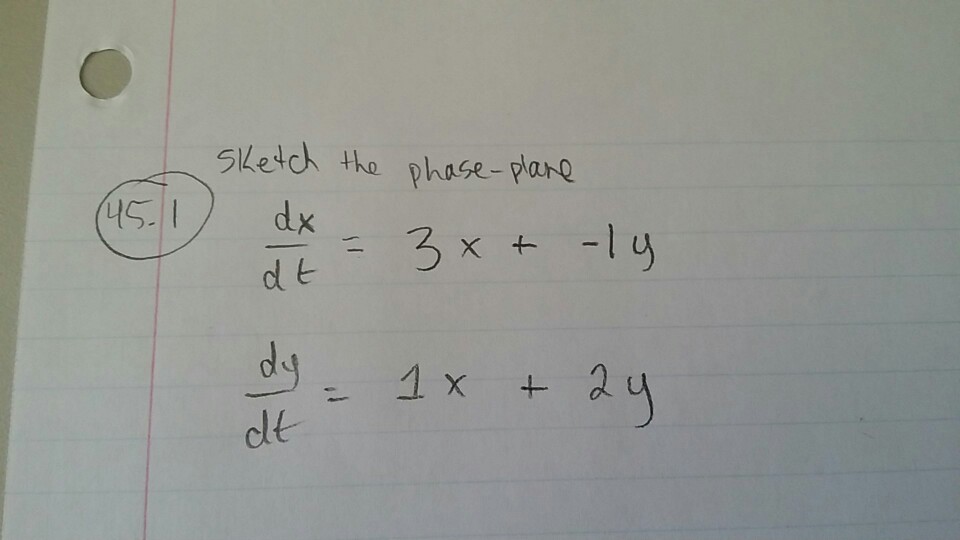 Sketch the phase-plane
45.1
dx/dt = 3x + -1y
dy/dt = 1x + 2y